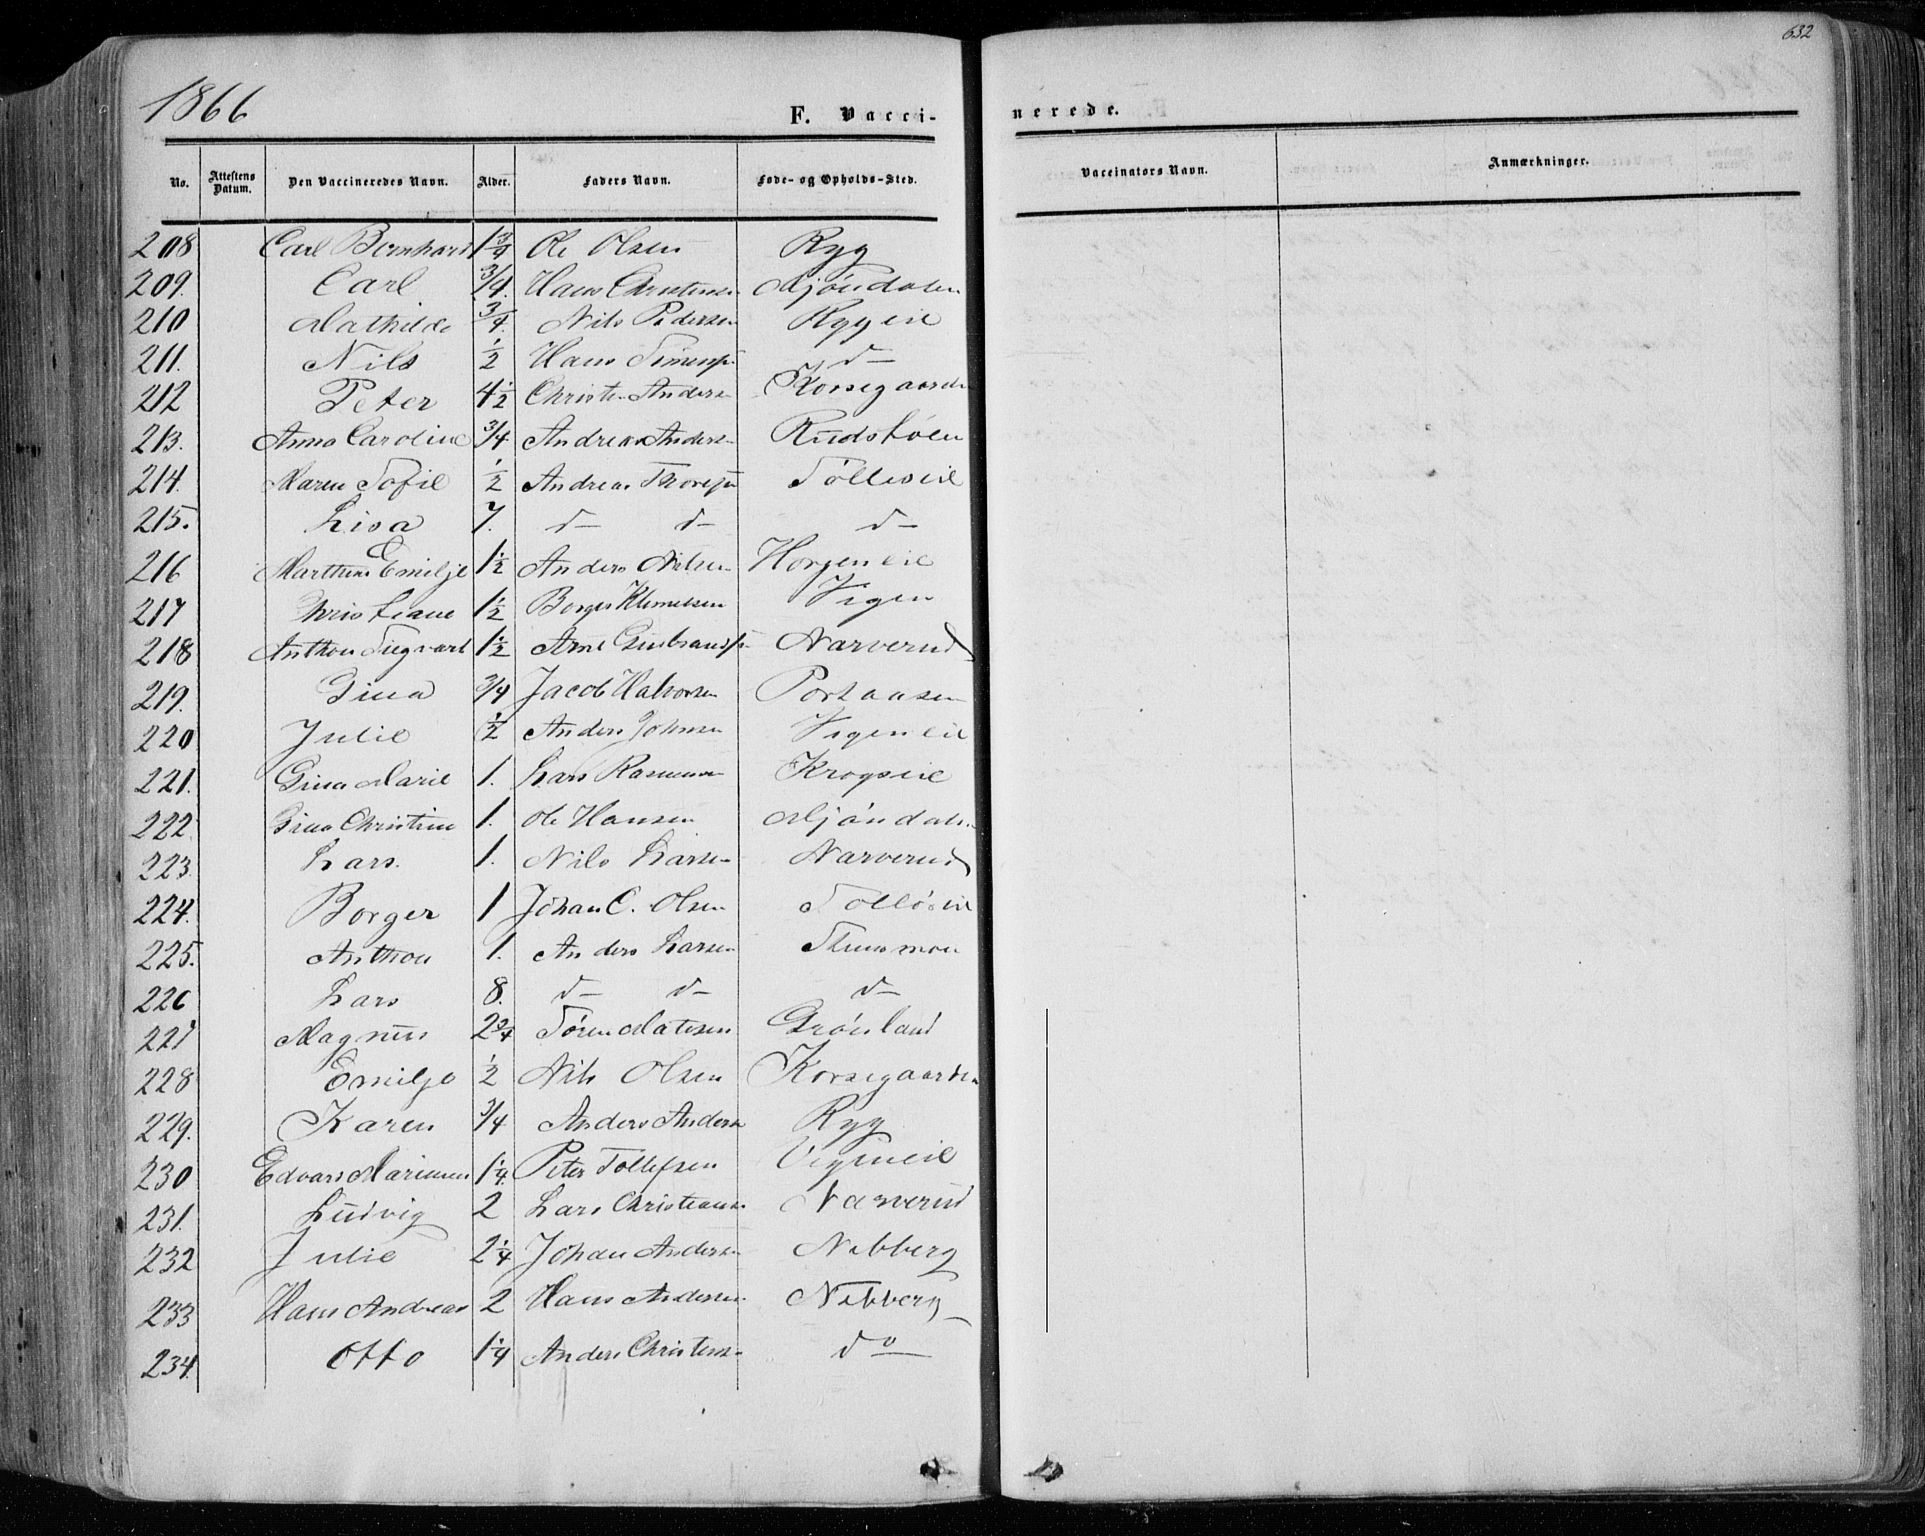 632
1866
F. Vacci-
nerede.
No. Attestens Datum. Den Vaccineredes Navn. Alder. Faders Navn. Føde- og Opholds-Sted. Vaccinators Navn. Anmærkninger.
208 Carl Bernhard 1 3/4 Ole Olsen Ryg
209. Carl 3/4. Hans Christens. Mjöndalen
210 Mathilde 3/4. Nils Pedersen Rygeie
211. Nils 1/2 Hans d-
212 Peter 4 1/2 Christen Anders Korsegaarden
213. Anna Caroline 3/4 Andreas Anders
214. Maren Sofie 1/2 Andreas
215. Lisa 7. d- d- d-
216 Marthine Emilje 1 1/2 Anders Nilsen Horgeneie
217 Christiane 1 1/2 Borger Klemetsen Vigen
218 Anthon Siegvart 1 1/2 Arne Gulbrands. Narverud
219. Gina 3/4 Jacob Halvorsen Portaasen
220 Julie 1/2 Anders Johnsen Vigeneie
221. Gina Marie 1. Lars Rasmussen Krogseie
222 Gina Christine 1. Ole Hansen Mjöndalen
223 Lars. 1. Nils Larsen Narverud
224. Borger 1 Johan C. Olsen
225. Anthon 1. Anders Larsen
226 Lars 8. d- d- d-
227 Magnus 2 3/4 Sören Matisen Grönland
228 Emilje 1/2 Nils Olsen Korsegaarden
229. Karen 3/4 Anders Anders Ryg
230 Edvard Marinius 1 1/4. Peter Tollefsen Vigeneie
231. Ludvig 2 Lars Christians. Narverud
232 Julie 2 1/4 Johan Anders Nebberg
233 Hans Andreas 2 Hans Andersen Nebberg
234. Otto 1 1/4 Anders Christens. do